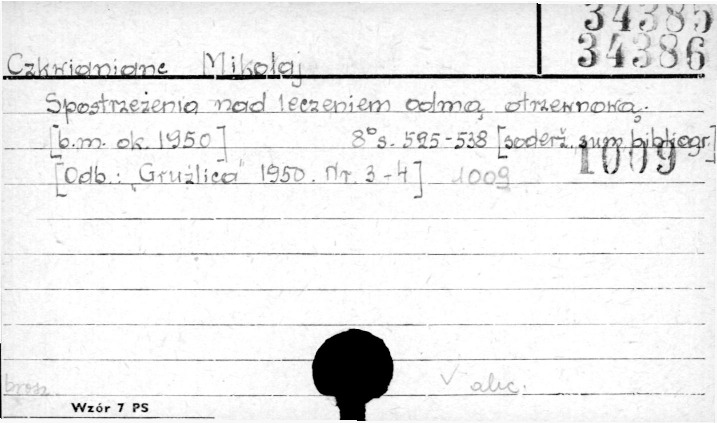 34385
34386
Czkwianianc Mikołaj
Spostrzeżenia nad leczeniem odmą otrzewnową.
[b.m. ok. 1950] 8° s. 525-538 [soderż. sum. bibliogr.]
1009
[Odb.: „Gruźlica" 1950. Nr. 3-4] 1009
brosz. alc.
Wzór 7 PS